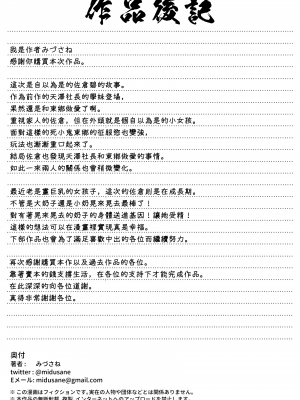 作品後記
我是作者みづさね
感謝你購買本次作品。
這次是自以為是的佐倉碧的故事。
作為前作的天澤社長的學妹登場，
果然還是和東鄉做愛了啊。
重視家人的佐倉，但在外頭就是個自以為是的小女孩。
面對這樣的死小鬼東鄉的征服慾也變強，
玩法也漸漸重口起來了。
結局佐倉也發現天澤社長和東鄉做愛的事情。
如此一來兩人的關係也變得稍微變化。
最近老是畫巨乳的女孩子，這次的佐倉則是在成長期。
不管是大奶子還是小奶晃來晃去最棒了！
對有著晃來晃去的奶子的身體送進基因！讓她受精！
這樣的想法可以在漫畫裡實現真是幸福。
下部作品也會為了滿足喜歡中出的各位而繼續努力。
再次感謝購買本作以及過去作品的各位。
靠著賣本的錢支撐生活，在各位的支持下才能完成作品。
在此深深的向各位道謝。
真得非常謝謝各位。
奥付
著者：　みづさね
twitter：@midusane
Eメール：midusane@gmail.com
※この漫画はフィクションです。実在の人物や団体などとは関係ありません。
※本作品の無断転載、複製、インターネットへのアップロードを禁止します。